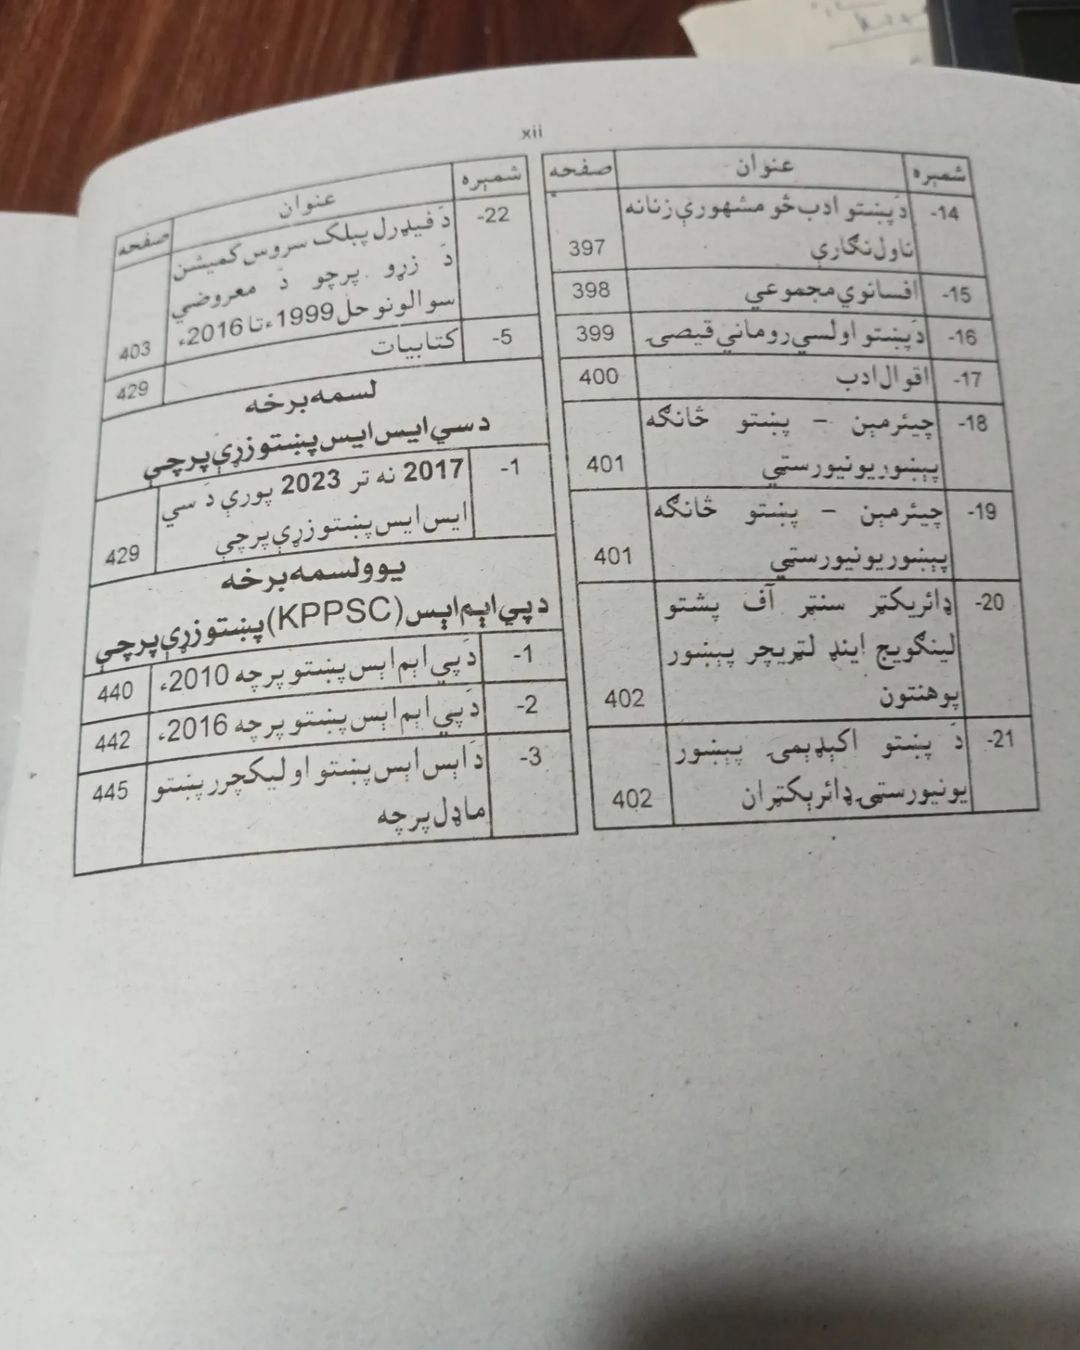 xii
شمېره عنوان صفحه
14- دَ پښتو ادب څو مشهورې زنانه
ناول نګارې 397
15- افسانوي مجموعې 398
16- دَ پښتو اولسي روماني قيصې 399
17- اقوال ادب 400
18- چيئرمېن – پښتو څانګه
پېښور يونيورسټي 401
19- چيئرمېن – پښتو څانګه
پېښور يونيورسټي 401
20- ډائريکټر سنټر آف پشتو
لينګويج اينډ لټريچر پېښور
پوهنتون 402
21- دَ پښتو اکېډېمۍ پېښور
يونيورسټۍ ډائرېکټران 402
شمېره عنوان صفحه
22- دَ فيډرل پبلک سروس کميشن
دَ زړو پرچو دَ معروضي
سوالونو حل 1999ء تا 2016ء 403
5- کتابيات 429
لسمه برخه
د سي ايس ايس پښتو زړې پرچې
1- 2017 نه تر 2023 پورې دَ سي
ايس ايس پښتو زړې پرچې 429
يوولسمه برخه
د پي اېم اېس (KPPSC) پښتو زړې پرچې
1- دَ پي اېم اېس پښتو پرچه 2010ء 440
2- دَ پي اېم اېس پښتو پرچه 2016ء 442
3- دَ اېس اېس پښتو او ليکچرر پښتو
ماډل پرچه 445